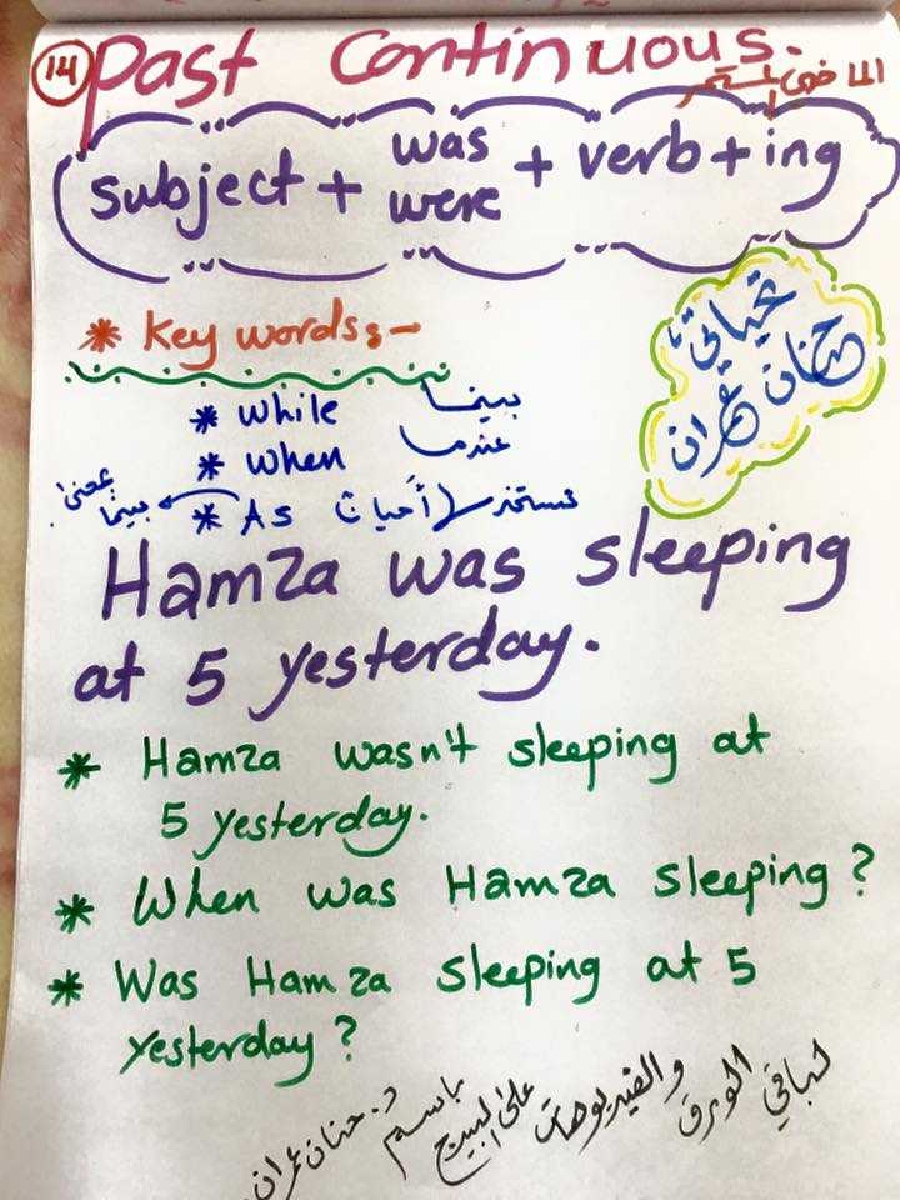 14 Past Continuous.
الماضي المستمر
subject + was were + verb + ing
* Key words:-
تحياتي
حنان عمران
* while بينما
* when عندما
* As تستخدم أحيانًا
بمعنى بينما
Hamza was sleeping
at 5 yesterday.
* Hamza wasn't sleeping at
5 yesterday.
* When was Hamza sleeping ?
* Was Hamza sleeping at 5
yesterday ?
لباقي الورق والفيديوهات على البيج باسم د. حنان عمران